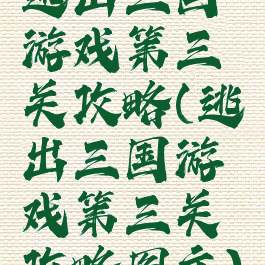 逃出三国
游戏第三
关攻略(逃
出三国游
戏第三关
攻略图文)